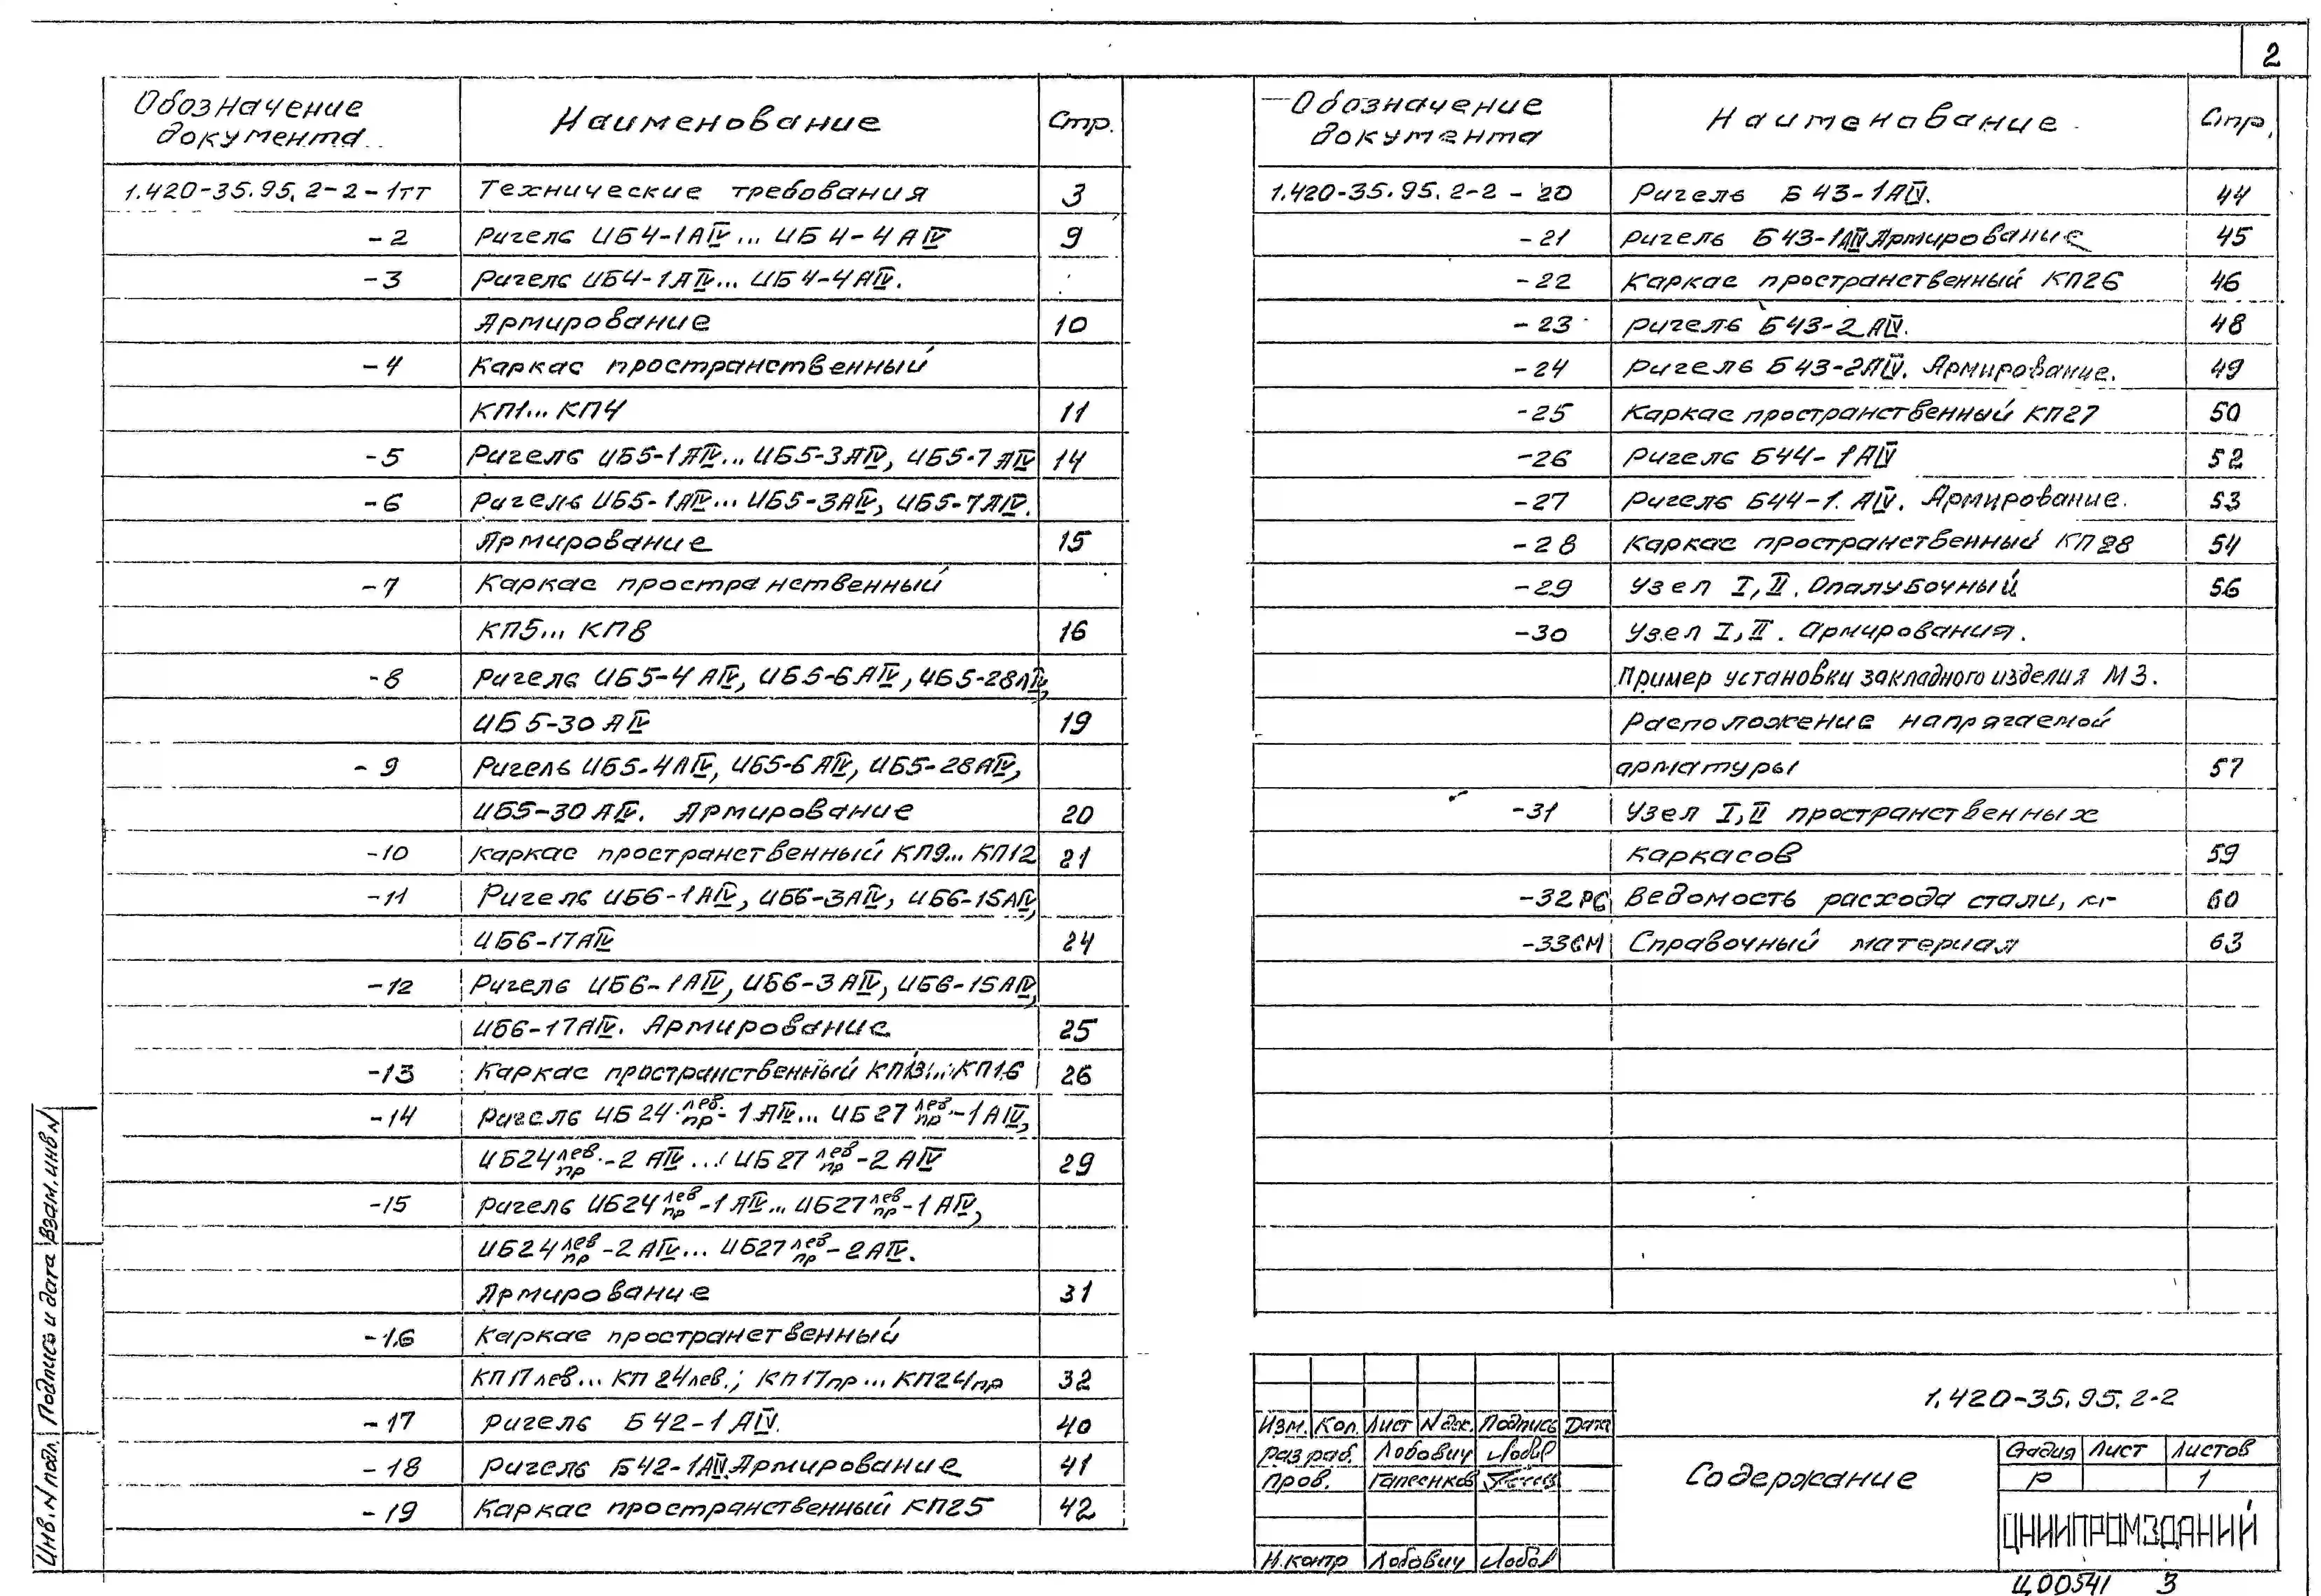 2
Обозначение документа Наименование Стр.
1.420-35.95.2-2-1ТТ Технические требования 3
-2 Ригель ИБ4-1АIV... ИБ4-4АIV 9
-3 Ригель ИБ4-1АIV... ИБ4-4АIV.
Армирование 10
-4 Каркас пространственный
КП1... КП4 11
-5 Ригель ИБ5-1АIV... ИБ5-3АIV, ИБ5-7АIV 14
-6 Ригель ИБ5-1АIV... ИБ5-3АIV, ИБ5-7АIV.
Армирование 15
-7 Каркас пространственный
КП5... КП8 16
-8 Ригель ИБ5-4АIV, ИБ5-6АIV, ИБ5-28АIV,
ИБ5-30АIV 19
-9 Ригель ИБ5-4АIV, ИБ5-6АIV, ИБ5-28АIV,
ИБ5-30АIV. Армирование 20
-10 Каркас пространственный КП9... КП12 21
-11 Ригель ИБ6-1АIV, ИБ6-3АIV, ИБ6-15АIV,
ИБ6-17АIV 24
-12 Ригель ИБ6-1АIV, ИБ6-3АIV, ИБ6-15АIV,
ИБ6-17АIV. Армирование 25
-13 Каркас пространственный КП13... КП16 26
-14 Ригель ИБ24 лев./пр-1АIV... ИБ27 лев./пр-1АIV,
ИБ24 лев./пр-2АIV... ИБ27 лев/пр-2АIV 29
-15 Ригель ИБ24 лев/пр-1АIV... ИБ27 лев/пр-1АIV,
ИБ24 лев/пр-2АIV... ИБ27 лев/пр-2АIV.
Армирование 31
-16 Каркас пространственный
КП17лев... КП24лев.; КП17пр... КП24пр 32
-17 Ригель Б42-1АIV. 40
-18 Ригель Б42-1АIV.Армирование 41
-19 Каркас пространственный КП25 42
Обозначение документа Наименование Стр.
1.420-35.95.2-2-20 Ригель Б43-1АIV. 44
-21 Ригель Б43-1АIV Армирование 45
-22 Каркас пространственный КП26 46
-23 Ригель Б43-2АIV. 48
-24 Ригель Б43-2АIV. Армирование. 49
-25 Каркас пространственный КП27 50
-26 Ригель Б44-1АIV 52
-27 Ригель Б44-1.АIV. Армирование. 53
-28 Каркас пространственный КП28 54
-29 Узел I, II. Опалубочный 56
-30 Узел I, II. Армирования.
Пример установки закладного изделия М3.
Расположение напрягаемой
арматуры 57
-31 Узел I, II пространственных
каркасов 59
-32РС Ведомость расхода стали, кг 60
-33СМ Справочный материал 63
1.420-35.95.2-2
Изм. Кол. Лист N док. Подпись Дата
Разраб. Лобович
Пров. Гапеенков
Н.контр Лобович
Содержание
Стадия Лист Листов
Р 1
ЦНИИПРОМЗДАНИЙ
Ц00541 3
Инв. N подл. Подпись и дата Взам. инв N